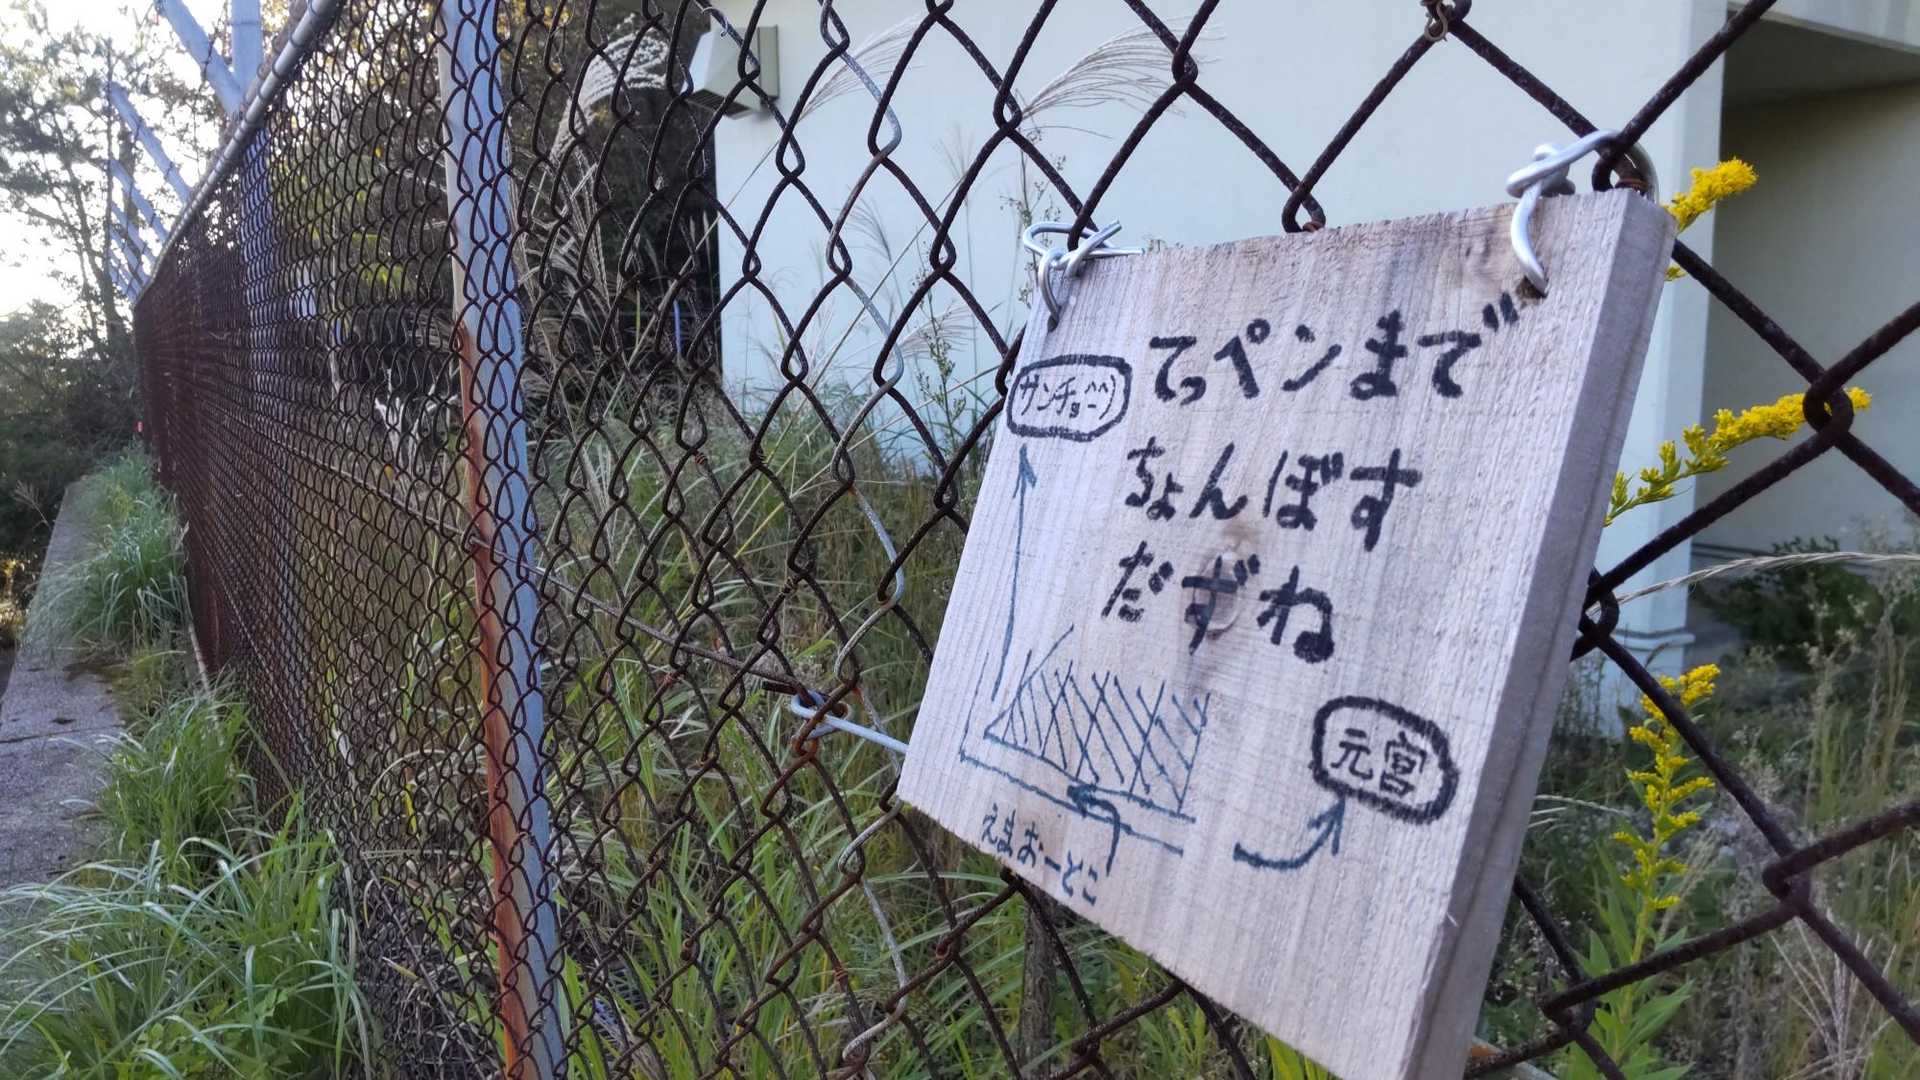 てっペンまで
サンチョー^^)
ちょんぼす
だずね
元宮
えまおーどこ